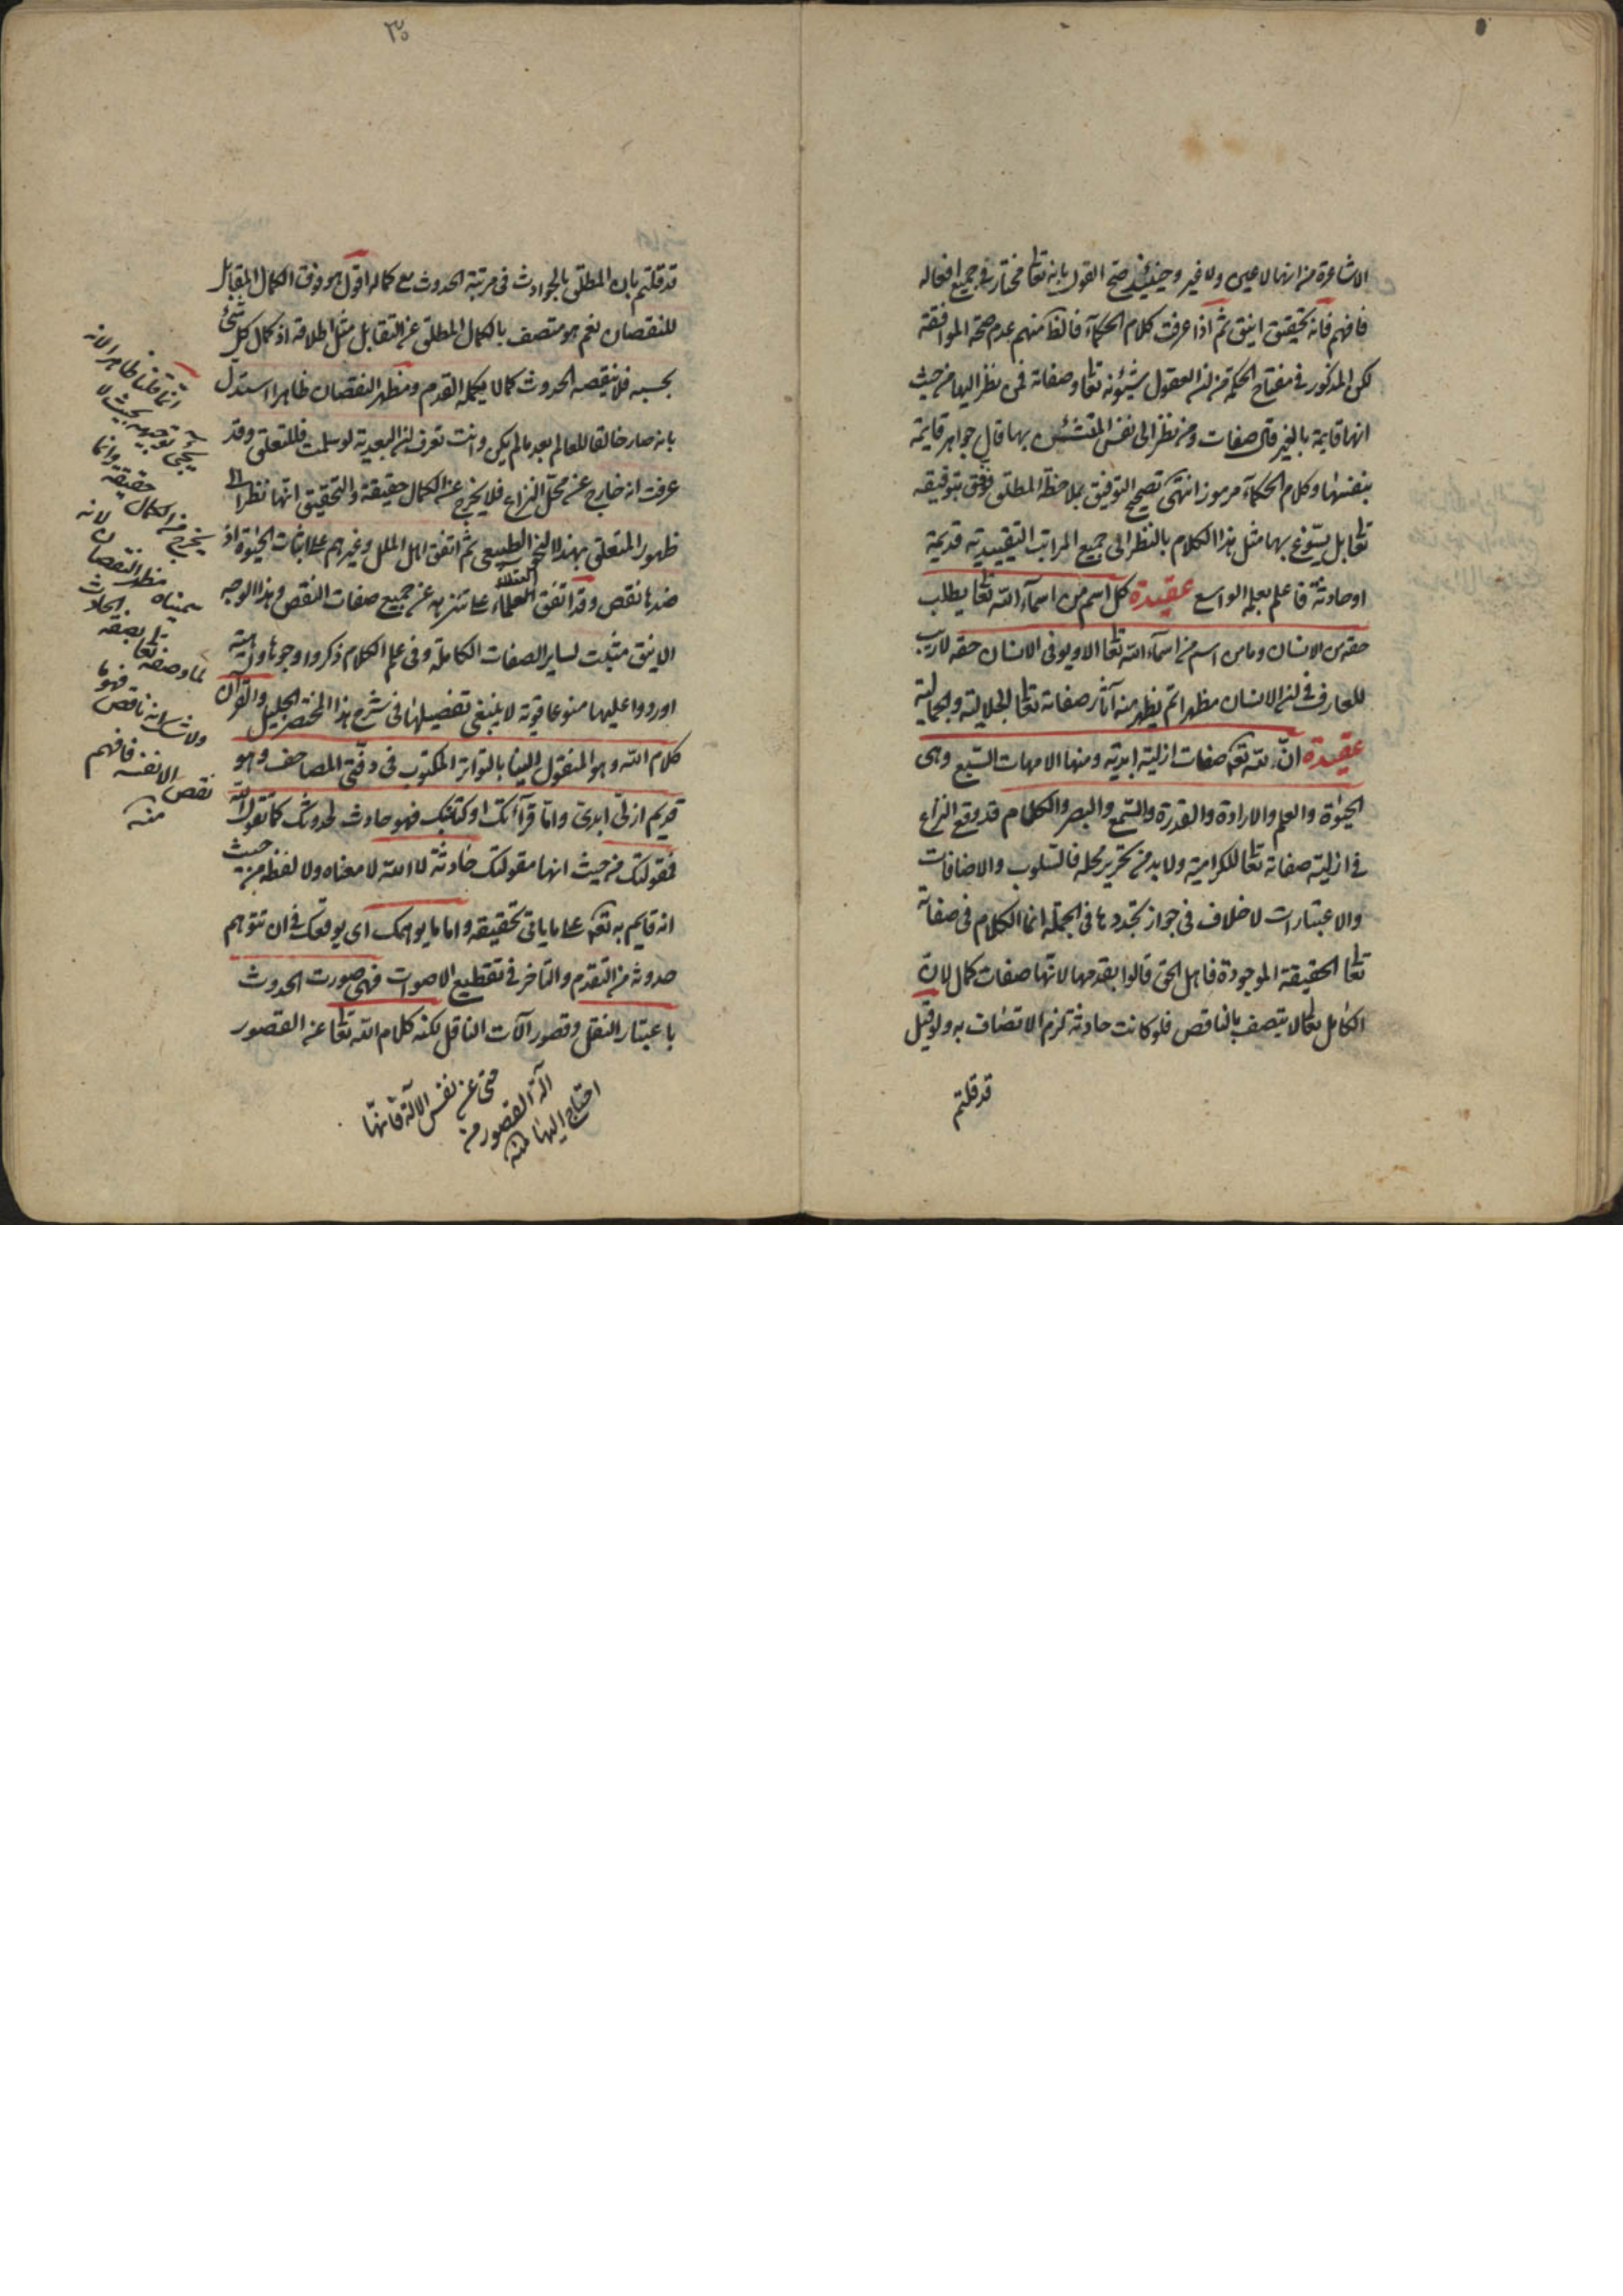 الاشاعرة من انها لا عين ولا غير وحينئذ صح القول بانه تعا مختار في جميع افعاله
فافهم فانه تحقيق انيق ثم اذا عرفت كلام الحكمآء فالظ منهم عدم صحة الموافقة
لكن المذكور في مفتاح الحكمة من ان العقول شيئونه تعا وصفاته فمن نظر اليها من حيث
انها قايمة بالغير قال صفات ومن نظر الى نفس المتشئين بها قال جواهر قايمة
بنفسها وكلام الحكمآء مرموز انتهى تصحيح التوفيق بملاحظة المطلق وفق بتوفيقه
تعا بل يسوغ بها مثل هذا الكلام بالنظر الى جميع المراتب التقييدية قديمة
او حادثة فاعلم بعلمه الواسع عقيدة كل اسم من اسمآء الله تعا يطلب
حقه من الانسان وما من اسم من اسمآء الله تعا الا ويوفى الانسان حقه لا ريب
للعارف في ان الانسان مظهر اتم يظهر منه آثار صفاته تعا الجلالية والجمالية
عقيدة ان لله تع صفات ازلية ابدية ومنها الامهات السبع وهى
الحيوة والعلم والارادة والقدرة والسمع والبصر والكلام قد وقع النزاع
في ازلية صفاته تعا للكرامية ولا بد من تحرير محله فالسلوب والاضافات
والاعتبارات لا خلاف في جواز تجددها في الجملة انما الكلام في صفاته
تعا الحقيقة الموجودة فاهل الحق قالوا بقدمها لانها صفات كمال لان
الكامل تعا لا يتصف بالناقص فلو كانت حادثة لزم الاتصاف به ولو قيل
قد قلتم
٣٠
قد قلتم بان المطلق بالحوادث في مرتبة الحدوث مع كماله اقول هو فوق الكمال المقابل
للنقصان نعم هو متصف بالكمال المطلق عن التقابل مثل اطلاقه اذ كمال كل شئ
بحسبه فلا ينقصه الحدوث كما لا يكمله القدم ومظهر النقصان ظاهرا استدل
بانه صار خالقا للعالم بعد ما لم يكن وانت تعرف ان البعدية لو سلمت فللتعلق وقد
عرفت انه خارج عن محل النزاع فلا يخرج عن الكمال حقيقة والتحقيق انها نظرا الى
ظهور المتعلق بهذا النحو الطبيعى ثم اتفق اهل الملل وغيرهم على اثبات الحيوة اذ
ضدها نقص وقد اتفق العقلاء العلماء على تنزهه عن جميع صفات النقص وهذا الوجه
الانيق مثبت لساير الصفات الكاملة وفى علم الكلام ذكروا وجوها واهية
اوردوا عليها منوعا قوية لا ينبغى تفصيلها في شرح هذا المختصر الجليل والقرآن
كلام الله وهو المنقول الينا بالتواتر المكتوب فى دفتى المصاحف وهو
قديم ازلى ابدى واما قرآءتك او كتابتك فهو حادث لحدوثك كما تقول الله
فمقولتك من حيث انها مقولتك حادثة لا الله لا معناه ولا لفظه من حيث
انه قايم به تع على ما ياتى تحقيقه واما ما يوهمك اى يوقعك في ان تتوهم
حدوثه من التقدم والتاخر في تقطيع الاصوات فهى صورت الحدوث
باعتبار النقل وقصور آلات الناقل لكنه كلام الله تعا عن القصور
انما قلنا ظاهرا لانه
يجئ توجيهه بحيث لا
يخرج من الكمال حقيقة وانما
سميناه مظهر النقصان لانه
تعا لما وصفه بصفة الحادث
ولا شك انه ناقص فهو
نقص الا نفسه فافهم
منه
حتى عن نفس الآلة فانها
آلة القصور من
احتاج اليها منه